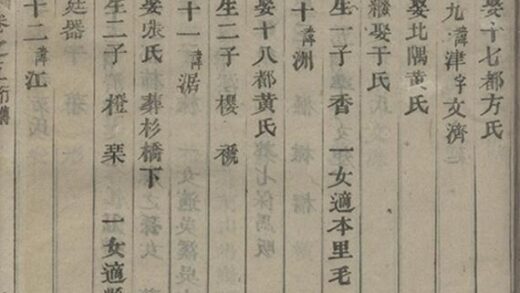 娶十七都方氏
九諱津字文濟
娶北隅黃氏
繼娶于氏
生一子香 一女適本里毛
十諱洲
娶十八都黃氏
生二子櫻
十一諱涺
娶張氏葬杉橋下
生二子橙 栞 一女適
十二諱江